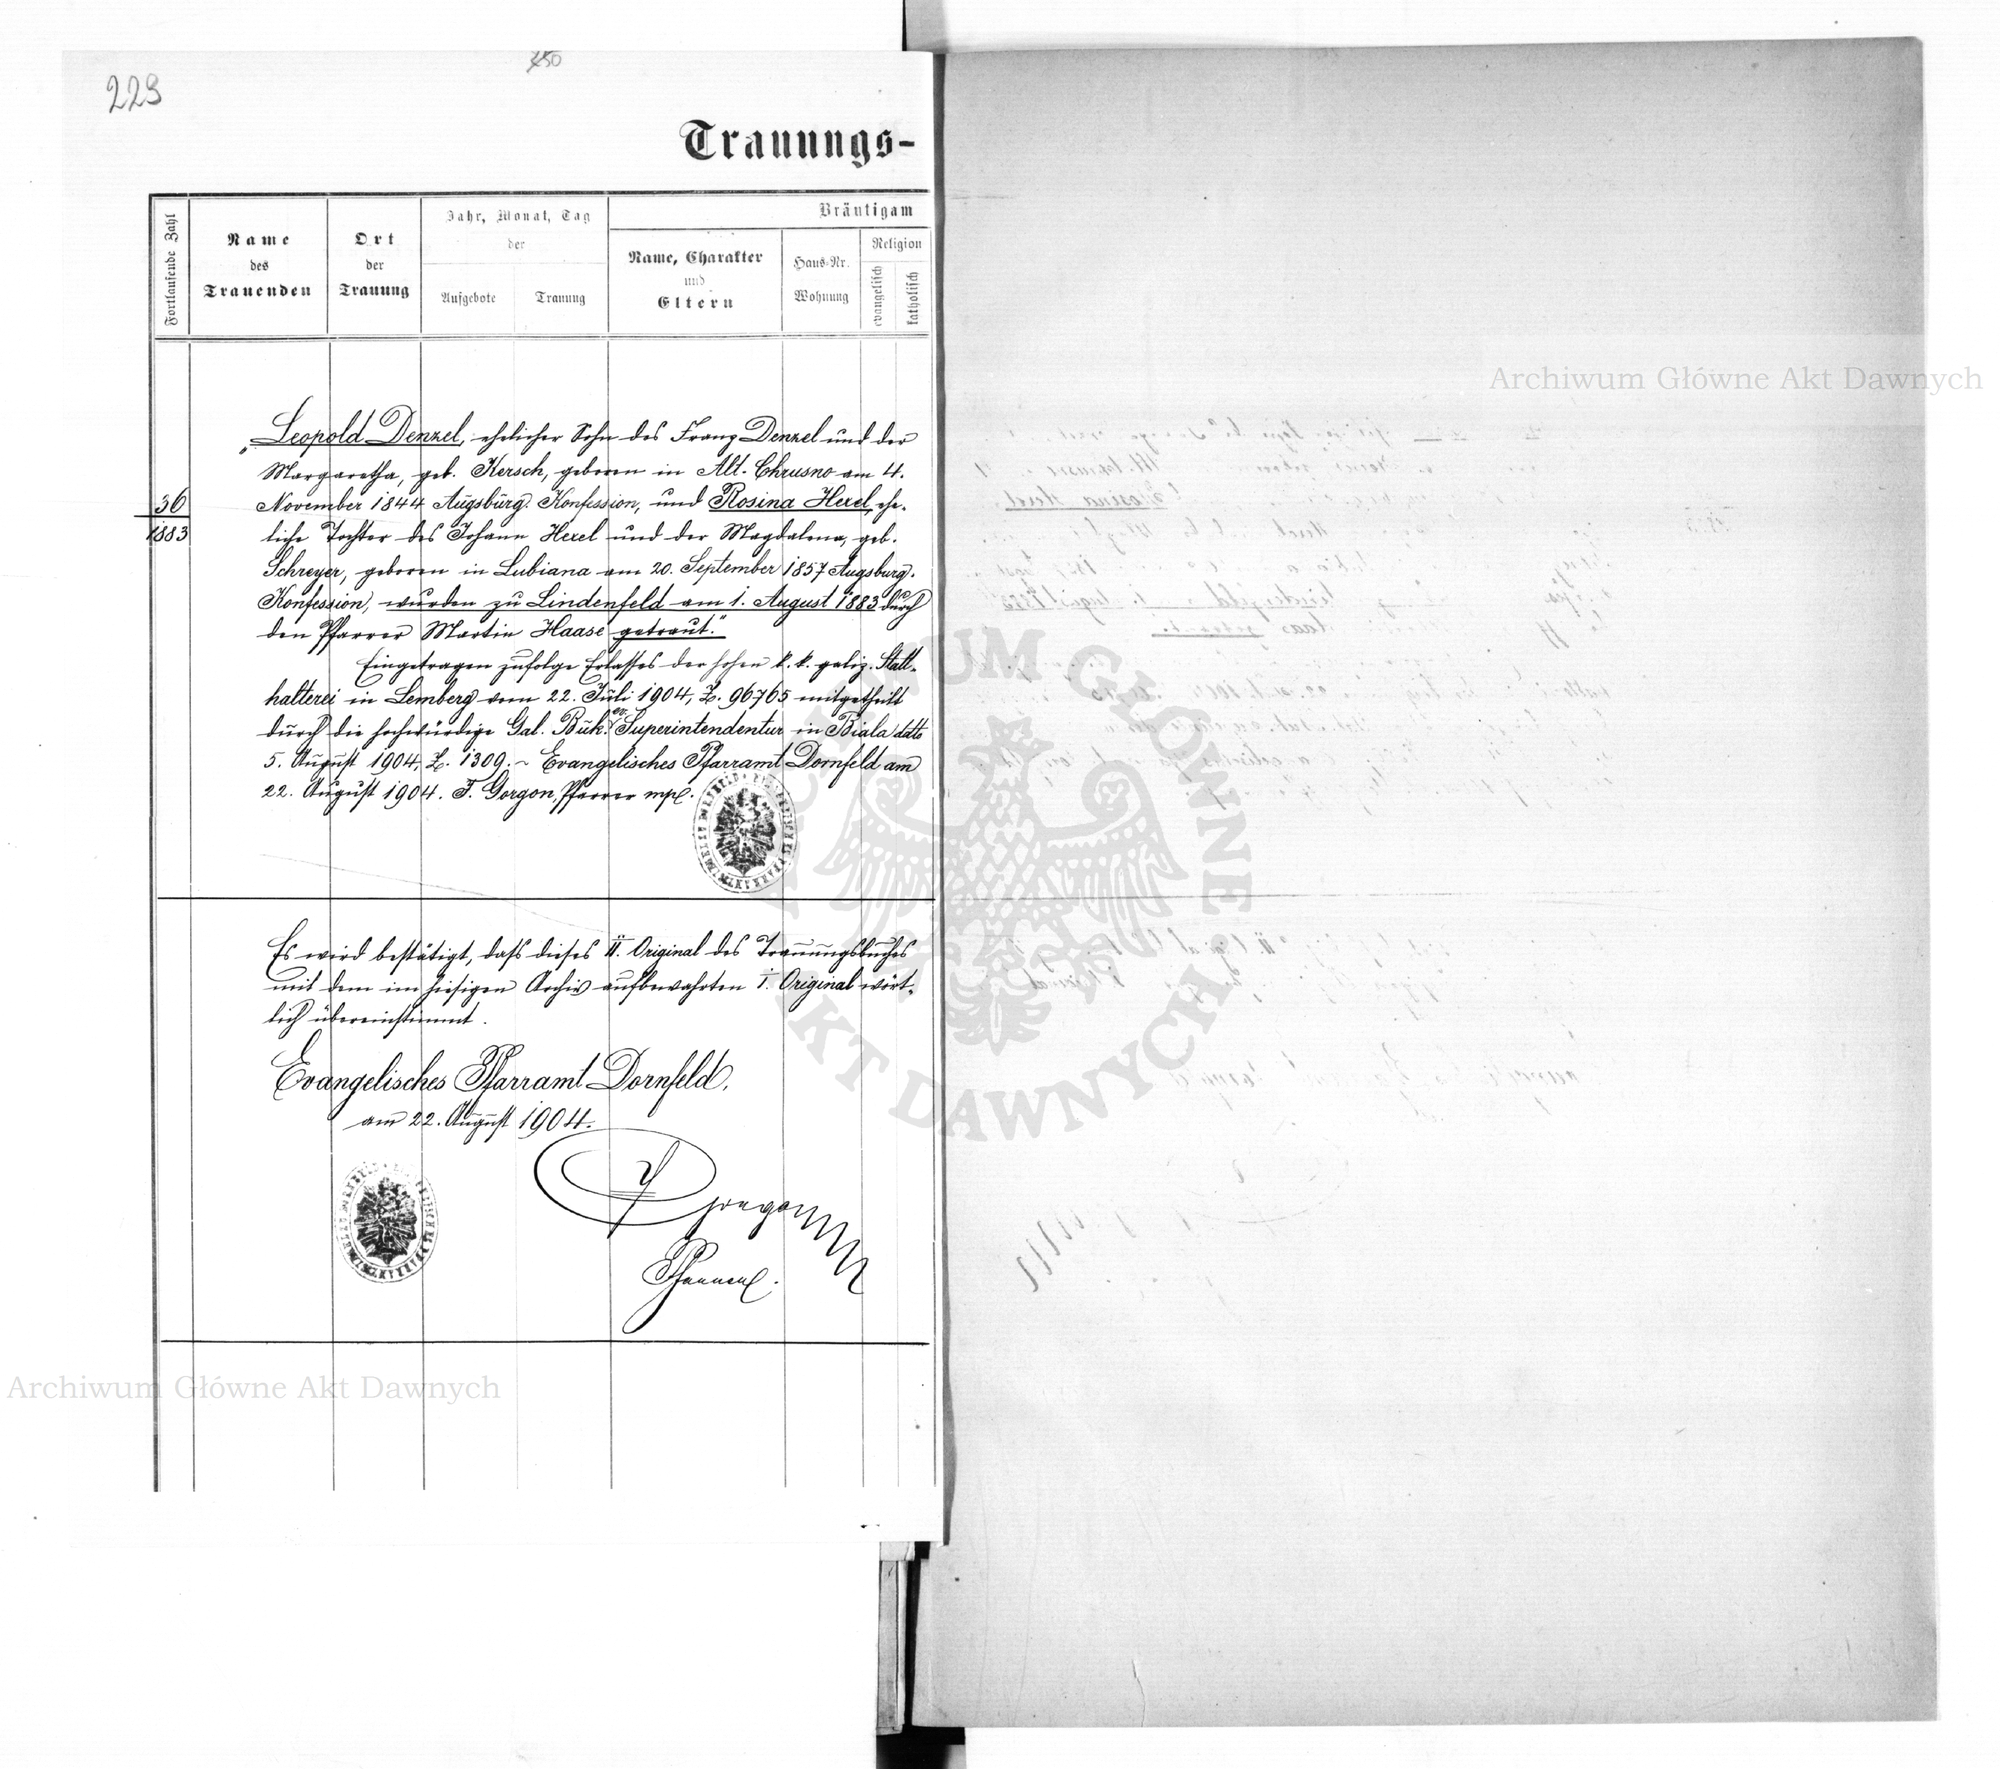 450
229
Trauungs-
Fortlaufende Zahl
Name
des
Trauenden
Ort
der
Trauung
Jahr, Monat, Tag
der
Aufgebote
Trauung
Bräutigam
Name, Charakter
und
Eltern
Haus-Nr.
Wohnung
Religion
evangelisch
katholisch
36
1883
„Leopold Denzel, ehelicher Sohn des Franz Denzel und der
Margaretha, geb. Kersch, geboren in Alt-Chrusno am 4.
November 1844 Augsburg. Konfession, und Rosina Hexel, ehe-
liche Tochter des Johann Hexel und der Magdalena, geb.
Schreyer, geboren in Lubiana am 20. September 1857 Augsburg.
Konfession, wurden zu Lindenfeld am 1. August 1883 durch
den Pfarrer Martin Haase getraut.“
Eingetragen zufolge Erlasses der hohen k. k. galiz. Statt-
halterei in Lemberg vom 22. Juli 1904, Z. 96765 mitgetheilt
durch die hochwürdige Gal. Buk. ev. Superintendentur in Biala ddto
5. August 1904, Z. 1309. ~ Evangelisches Pfarramt Dornfeld am
22. August 1904. F. Gorgon, Pfarrer mpl.
Es wird bestätigt, dass dieses II. Original des Trauungsbuches
mit dem im hiesigen Archiv aufbewahrten I. Original wört-
lich übereinstimmt.
Evangelisches Pfarramt Dornfeld,
am 22. August 1904.
F Gorgon
Pfarrer.
Archiwum Główne Akt Dawnych
Archiwum Główne Akt Dawnych
ARCHIWUM GŁÓWNE AKT DAWNYCH